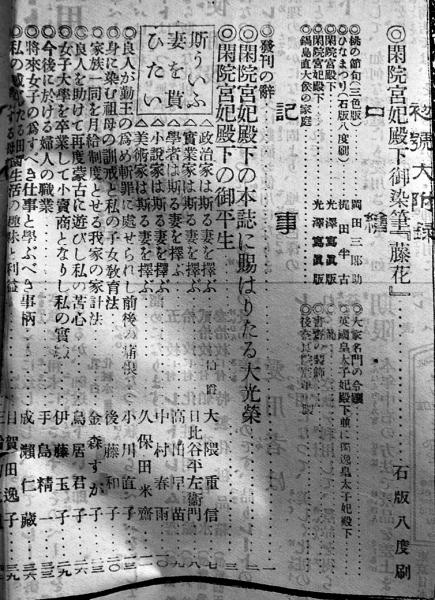 初號大附錄
◎閑院宮妃殿下御染筆『藤花』……石版八度刷
口繪
◎桃の節句(三色版) 岡田三郎助
◎ひなまつり(石版八度刷) 梶田半古
◎閑院宮殿下 光澤寫眞版
◎閑院宮妃殿下 光澤寫眞版
◎鍋島直大侯の家庭
◎大家名門の令孃
◎英國皇太子妃殿下並に獨逸皇太子妃殿下
◎書齋の裝飾
記事
◎發刊の辭……一
◎閑院宮妃殿下の本誌に賜はりたる大光榮……二
◎閑院宮妃殿下の御平生……三
斯ういふ妻を貰ひたい
△政治家は斯る妻を擇ぶ 大隈重信 七
△實業家は斯る妻を擇ぶ 日比谷平左衞門 八
△學者は斯る妻を擇ぶ 高田早苗
△小說家は斯る妻を擇ぶ 中村春雨
△美術家は斯る妻を擇ぶ 久保田米齋
◎良人が勤王の爲め斬罪に處せられし前後の 小川直子
◎身に染む祖母の訓戒と私の子女敎育法 後藤和子
◎家族一同を月給制度とせる我家の家計法 金森すが子
◎良人を助けて再度蒙古に遊びし私の苦心 鳥居君子
◎女子大學を卒業して小賣商となりし私の實 伊藤玉子
◎今後に於ける婦人の職業 手島精一
◎將來女子の爲すべき仕事と學ぶべき事柄 成瀨仁藏
生活の趣味と利益 日賀田逸子